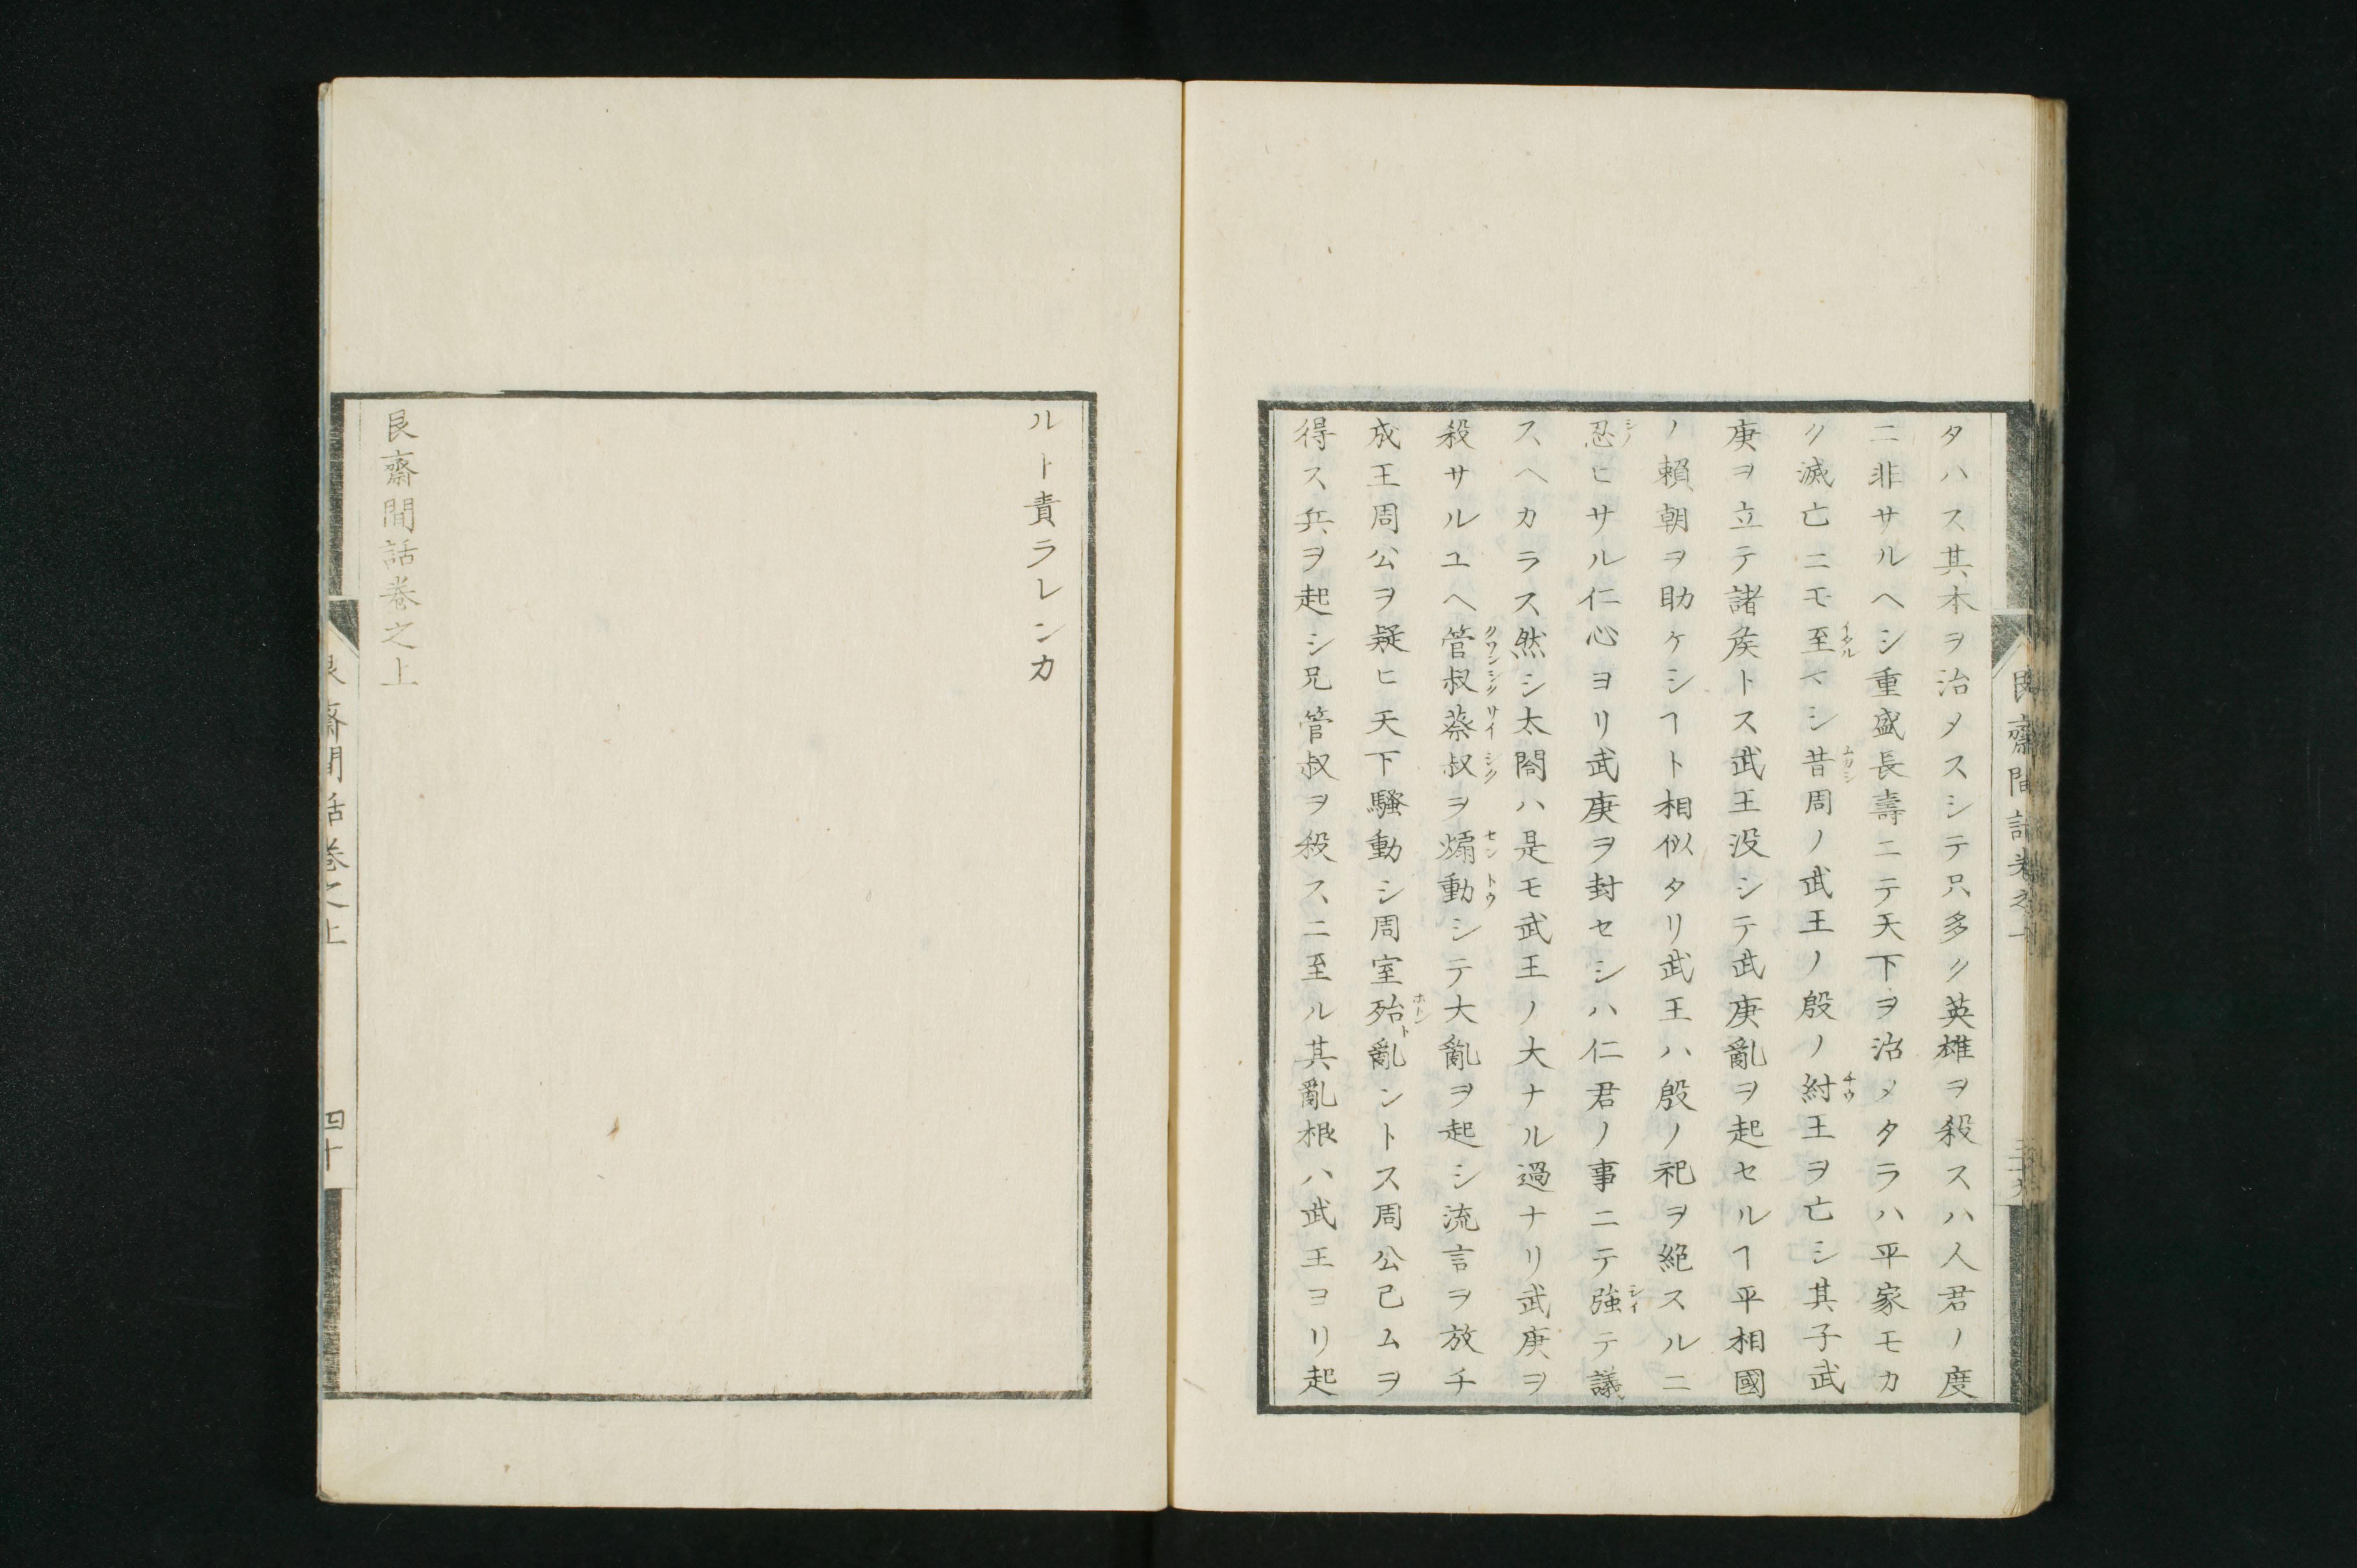 タハス其本ヲ治メスシテ只多ク英雄ヲ殺スハ人君ノ度
ニ非サルヘシ重盛長壽ニテ天下ヲ治メタラハ平家モカ
ク滅亡ニモ至ルマシ昔周ノ武王ノ殷ノ紂王ヲ亡シ其子武
庚ヲ立テ諸矦トス武王没シテ武庚亂ヲ起セルヿ平相國
ノ賴朝ヲ助ケシヿト相似タリ武王ハ殷ノ祀ヲ絶スルニ
忍ヒサル仁心ヨリ武庚ヲ封セシハ仁君ノ事ニテ強テ議
スヘカラス然シ太閤ハ是モ武王ノ大ナル過ナリ武庚ヲ
殺サルユヘ管叔蔡叔ヲ煽動シテ大亂ヲ起シ流言ヲ放チ
成王周公ヲ疑ヒ天下騷動シ周室殆亂ントス周公已ムヲ
得ス兵ヲ起シ兄管叔ヲ殺スニ至ル其亂根ハ武王ヨリ起
ルト責ラレンカ
艮齋間話巻之上
艮齋間話巻之上
四十